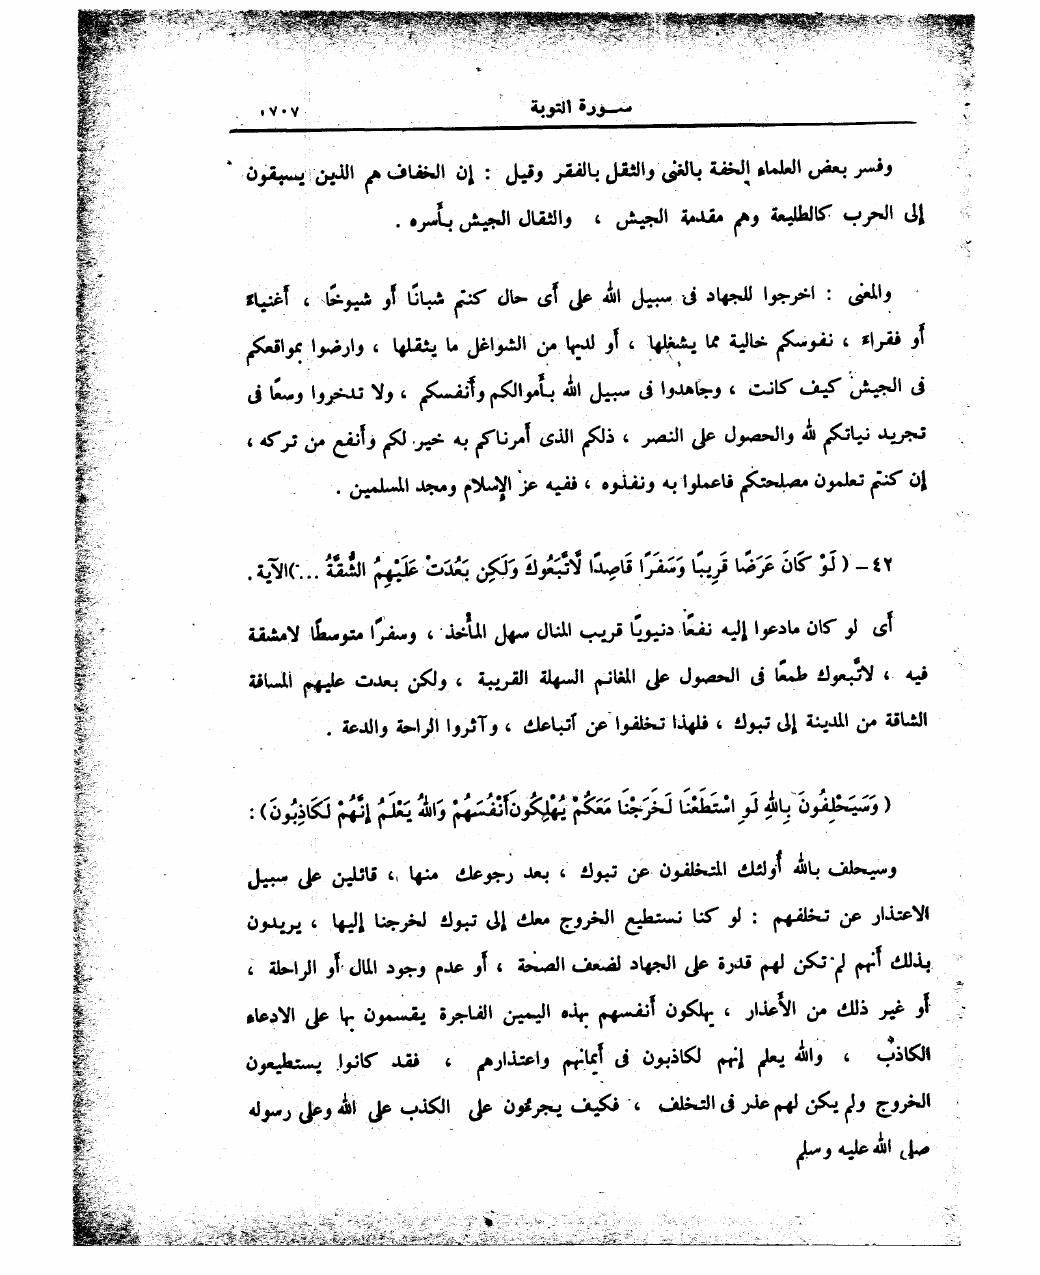 سورة التوبة ١٧٠٧
وفسر بعض العلماء الخفة بالغنى والثقل بالفقر وقيل : إن الخفاف هم الذين يسبقون
إلى الحرب كالطليعة وهم مقدمة الجيش ، والثقال الجيش بأسره .
والمعنى : اخرجوا للجهاد فى سبيل الله على أى حال كنتم شبانًا أو شيوخًا ، أغنياء
أو فقراء ، نفوسكم خالية مما يشغلها ، أو لديها من الشواغل ما يثقلها ، وارضوا بمواقعكم
فى الجيش كيف كانت ، وجاهدوا فى سبيل الله بأموالكم وأنفسكم ، ولا تدخروا وسعًا فى
تجريد نياتكم لله والحصول على النصر ، ذلكم الذى أمرناكم به خير لكم وأنفع من تركه ،
إن كنتم تعلمون مصلحتكم فاعملوا به ونفذوه ، ففيه عز الإسلام ومجد المسلمين .
٤٢ - ( لَوْ كَانَ عَرَضًا قَرِيبًا وَسَفَرًا قَاصِدًا لَّاتَّبَعُوكَ وَلَكِن بَعُدَتْ عَلَيْهِمُ الشُّقَّةُ ... )الآية .
أى لو كان مادعوا إليه نفعًا دنيويًا قريب المنال سهل المأخذ ، وسفرًا متوسطًا لامشقة
فيه ، لاتَّبعوك طمعًا فى الحصول على المغانم السهلة القريبة ، ولكن بعدت عليهم المسافة
الشاقة من المدينة إلى تبوك ، فلهذا تخلفوا عن أتباعك ، وآثروا الراحة والدعة .
( وَسَيَحْلِفُونَ بِاللهِ لَوِ اسْتَطَعْنَا لَخَرَجْنَا مَعَكُمْ يُهْلِكُونَ أَنْفُسَهُمْ وَاللهُ يَعْلَمُ إِنَّهُمْ لَكَاذِبُونَ ) :
وسيحلف بالله أُولئك المتخلفون عن تبوك ، بعد رجوعك منها ، قائلين على سبيل
الاعتذار عن تخلفهم : لو كنا نستطيع الخروج معك إلى تبوك لخرجنا إليها ، يريدون
بذلك أنهم لم تكن لهم قدرة على الجهاد لضعف الصحة ، أو عدم وجود المال أو الراحلة ،
أو غير ذلك من الأعذار ، يهلكون أنفسهم بهذه اليمين الفاجرة يقسمون بها على الادعاء
الكاذب ، والله يعلم إنهم لكاذبون فى أيمانهم واعتذارهم ، فقد كانوا يستطيعون
الخروج ولم يكن لهم عذر فى التخلف ، فكيف يجرءون على الكذب على الله وعلى رسوله
صلى الله عليه وسلم